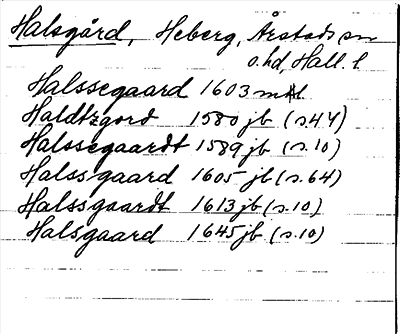 Halsgård, Heberg, Årstads sn
o. hd, Hall. l.
Halssegaard 1603 mtl
Haldtzgord 1580 jb (s. 44)
Halssegaardt 1589 jb (s. 10)
Halssgaard 1605 jb (s. 64)
Halssgaardt 1613 jb (s. 10)
Halsgaard 1645 jb (s. 10)